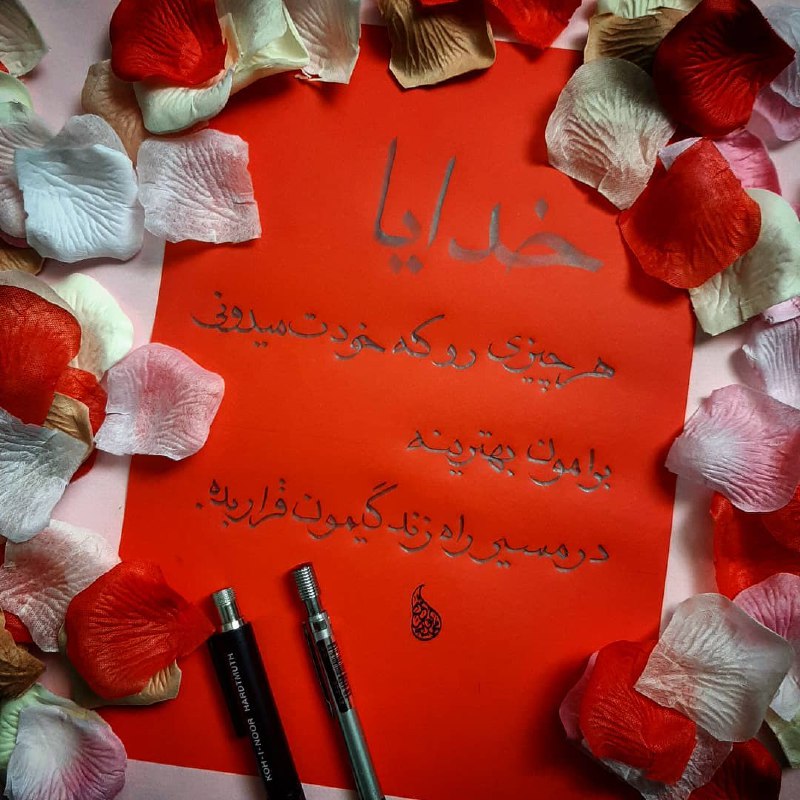 خدایا
هر چیزی رو که خودت میدونی
برامون بهترینه
در مسیر راه زندگیمون قرار بده.
KOH-I-NOOR HARDTMUTH